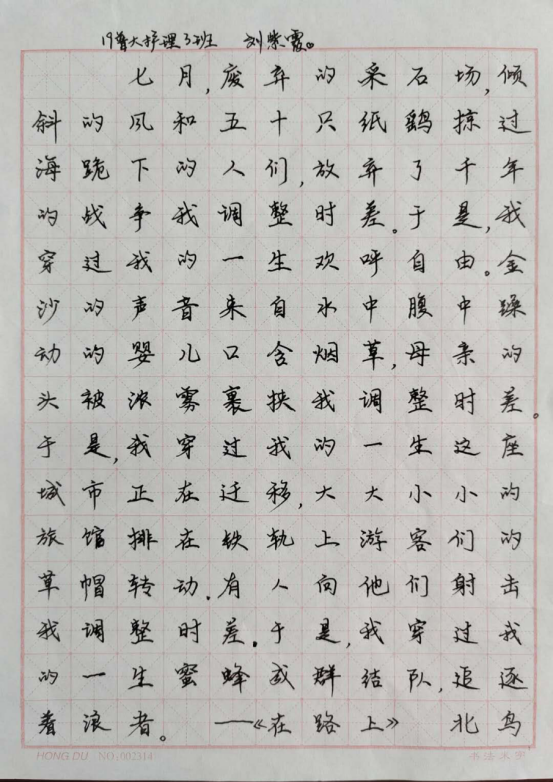 19普大护理3班 刘紫霞。
七月,废弃的采石场,倾
斜的风和五十只纸鹞掠过
海跪下的人们,放弃了千年
的战争我调整时差。于是,我
穿过我的一生欢呼自由。金
沙的声音来自水中腹中躁
动的婴儿口含烟草,母亲的
头被浓雾裹挟我调整时差。
于是,我穿过我的一生这座
城市正在迁移,大大小小的
旅馆排在铁轨上游客们的
草帽转动.有人向他们射击
我调整时差.于是,我穿过我
的一生蜜蜂成群结队,追逐
着浪者。——《在路上》 北鸟
HONG DU NO.002314
书法水写